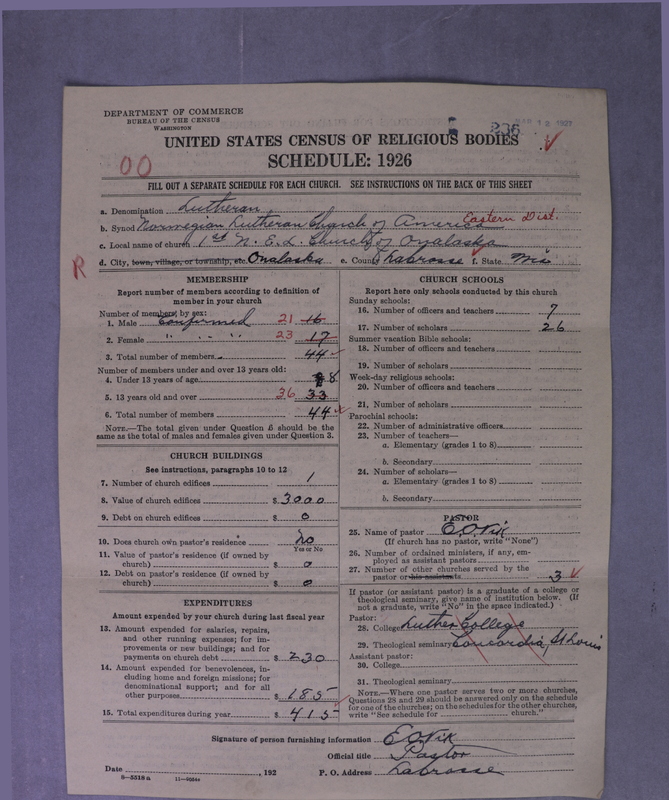 DEPARTMENT OF COMMERCE
BUREAU OF THE CENSUS
WASHINGTON
236 MAR 12 1927
UNITED STATES CENSUS OF RELIGIOUS BODIES
SCHEDULE: 1926
00
FILL OUT A SEPARATE SCHEDULE FOR EACH CHURCH. SEE INSTRUCTIONS ON THE BACK OF THIS SHEET
a. Denomination Lutheran
b. Synod Norwegian Lutheran Church of America Eastern Dist.
c. Local name of church 1st N. E. L. Church of Onalaska
R
d. City, town, village, or township, etc. Onalaska e. County Labrosse f. State Wis
MEMBERSHIP
Report number of members according to definition of
member in your church
Number of members, by sex:
1. Male Confirmed 21 16
2. Female " " " 23 17
3. Total number of members 44
Number of members under and over 13 years old:
4. Under 13 years of age 8
5. 13 years old and over 36 33
6. Total number of members 44
NOTE.—The total given under Question 6 should be the
same as the total of males and females given under Question 3.
CHURCH BUILDINGS
See instructions, paragraphs 10 to 12
7. Number of church edifices 1
8. Value of church edifices $ 3000
9. Debt on church edifices $ 0
10. Does church own pastor's residence No
Yes or No
11. Value of pastor's residence (if owned by
church) $ 0
12. Debt on pastor's residence (if owned by
church) $ 0
EXPENDITURES
Amount expended by your church during last fiscal year
13. Amount expended for salaries, repairs,
and other running expenses; for im-
provements or new buildings; and for
payments on church debt $ 230
14. Amount expended for benevolences, in-
cluding home and foreign missions; for
denominational support; and for all
other purposes $ 185
15. Total expenditures during year $ 415
CHURCH SCHOOLS
Report here only schools conducted by this church
Sunday schools:
16. Number of officers and teachers 7
17. Number of scholars 26
Summer vacation Bible schools:
18. Number of officers and teachers
19. Number of scholars
Week-day religious schools:
20. Number of officers and teachers
21. Number of scholars
Parochial schools:
22. Number of administrative officers
23. Number of teachers—
a. Elementary (grades 1 to 8)
b. Secondary
24. Number of scholars—
a. Elementary (grades 1 to 8)
b. Secondary
PASTOR
25. Name of pastor E. O. Vik
(If church has no pastor, write "None")
26. Number of ordained ministers, if any, em-
ployed as assistant pastors
27. Number of other churches served by the
pastor or his assistants 3
If pastor (or assistant pastor) is a graduate of a college or
theological seminary, give name of institution below. (If
not a graduate, write "No" in the space indicated.)
Pastor:
28. College Luther College
29. Theological seminary Concordia, St Louis
Assistant pastor:
30. College
31. Theological seminary
NOTE.—Where one pastor serves two or more churches,
Questions 28 and 29 should be answered only on the schedule
for one of the churches; on the schedules for the other churches,
write "See schedule for church."
Signature of person furnishing information E O Vik
Official title Pastor
Date , 192 P. O. Address Labrosse
8-5518a